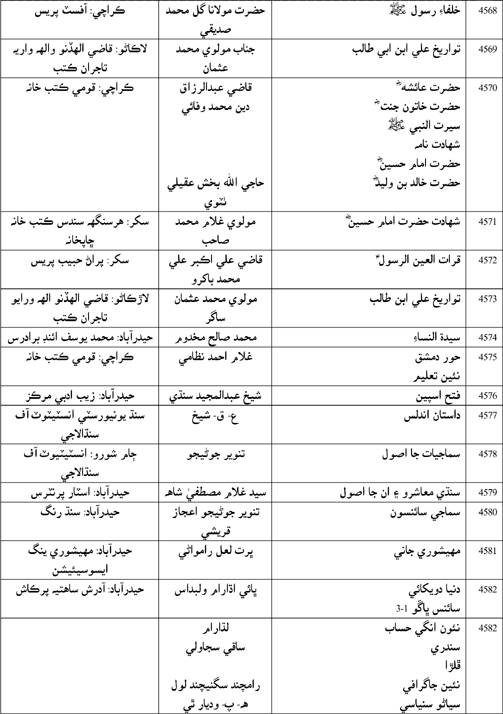 4568 خلفاءِ رسول ﷺ حضرت مولانا گل محمد ڪراچي: آفسٽ پريس
صديقي
4569 تواريخ علي ابن ابي طالب جناب مولوي محمد لاڪاڻو: قاضي الهڏنو والهہ واريہ
عثمان تاجران ڪتب
4570 حضرت عائشہ ؓ قاضي عبدالرزاق ڪراچي: قومي ڪتب خانہ
حضرت خاتون جنت ؓ دين محمد وفائي
سيرت النبي ﷺ
شهادت نامہ
حضرت امام حسين ؓ
حضرت خالد بن وليد ؓ حاجي الله بخش عقيلي
ٺٽوي
4571 شهادت حضرت امام حسين ؓ مولوي غلام محمد سکر: هرسنگھہ سندس ڪتب خانہ
صاحب ڇاپخانہ
4572 قرات العين الرسول ؐ قاضي علي اڪبر علي سکر: پراڻ حبيب پريس
محمد باکرو
4573 تواريخ علي ابن طالب مولوي محمد عثمان لاڙڪاڻو: قاضي الهڏنو الهہ ورايو
ساگر تاجران ڪتب
4574 سيدة النساءِ محمد صالح مخدوم حيدرآباد: محمد يوسف ائنڊ برادرس
4575 حور دمشق غلام احمد نظامي ڪراچي: قومي ڪتب خانہ
نئين تعليم
4576 فتح اسپين شيخ عبدالمجيد سنڌي حيدرآباد: زيب ادبي مرڪز
4577 داستان اندلس ع- ق- شيخ سنڌ يونيورسٽي انسٽيٽوٽ آف
سنڌالاجي
4578 سماجيات جا اصول تنوير جوڻيجو ڄام شورو: انسٽيٽيوٽ آف
سنڌالاجي
4579 سنڌي معاشرو ۽ ان جا اصول سيد غلام مصطفيٰ شاهہ حيدرآباد: اسٽار پرنٽرس
4580 سماجي سائنسون تنوير جوڻيجو اعجاز حيدرآباد: سنڌ رنگ
قريشي
4581 مهيشوري جاتي پرت لعل رامواڻي حيدرآباد: مهيشوري ينگ
ايسوسيئيشن
4582 دنيا دويڪائي ڀائي اڌارام ولبداس حيدرآباد: آدرش ساهتيہ پرڪاش
سائنس ڀاڱو 1-3
4582 نئون انگي حساب لڌارام
سندري ساقي سجاولي
ڦلڙا
نئين جاگرافي رامچند سگنيچند لول
سياڻو سنياسي هہ- پ- وديار ٿي